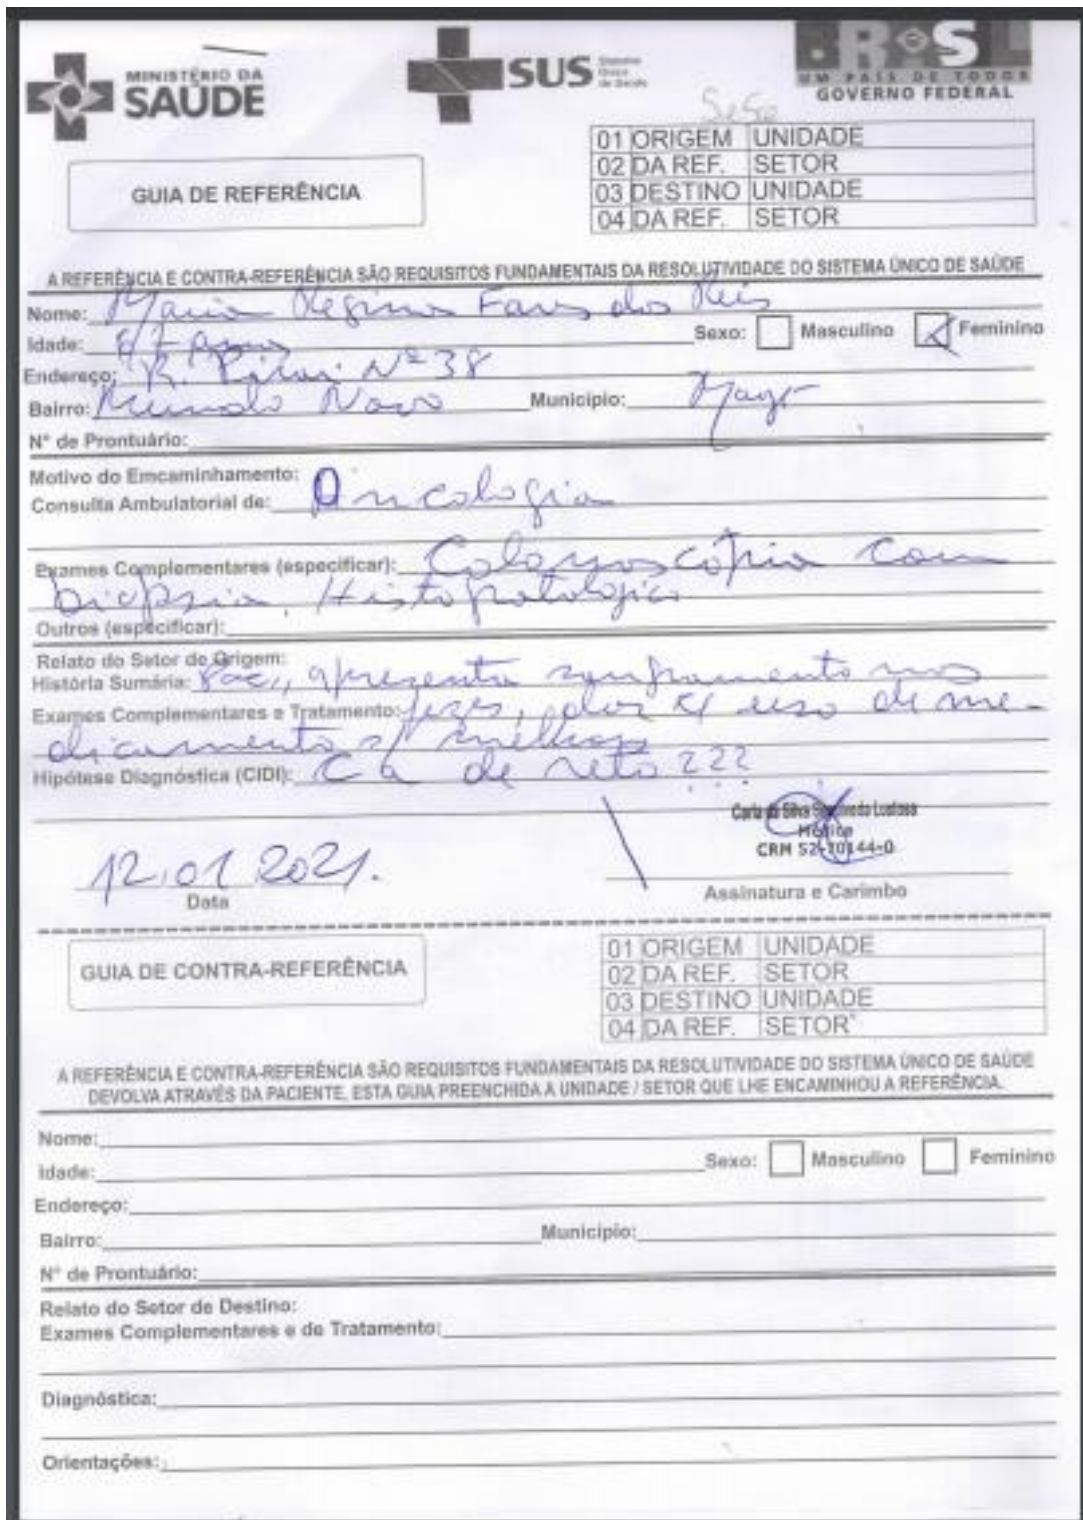 MINISTÉRIO DA
SAÚDE
SUS Sistema
Único
de Saúde
BRASIL
UM PAÍS DE TODOS
GOVERNO FEDERAL
GUIA DE REFERÊNCIA
01 ORIGEM UNIDADE
02 DA REF. SETOR
03 DESTINO UNIDADE
04 DA REF. SETOR
A REFERÊNCIA E CONTRA-REFERÊNCIA SÃO REQUISITOS FUNDAMENTAIS DA RESOLUTIVIDADE DO SISTEMA ÚNICO DE SAÚDE
Nome: Maria Regina dos Reis
Idade: anos Sexo: Masculino Feminino
Endereço: R. Nº 38
Bairro: Mundo Novo Município: Magé
N° de Prontuário:
Motivo do Emcaminhamento:
Consulta Ambulatorial de: Oncologia
Exames Complementares (especificar): Colonoscopia com
biópsia, Histopatológico
Outros (especificar):
Relato do Setor de Origem:
História Sumária: Pac, apresenta sangramento nas
Exames Complementares e Tratamento: fezes, dor c/ uso de me-
dicamento s/ melhora
Hipótese Diagnóstica (CIDI): Ca de reto ???
Carla da Silva Lustosa
Médica
CRM 52-
12.01.2021.
Data
Assinatura e Carimbo
GUIA DE CONTRA-REFERÊNCIA
01 ORIGEM UNIDADE
02 DA REF. SETOR
03 DESTINO UNIDADE
04 DA REF. SETOR
A REFERÊNCIA E CONTRA-REFERÊNCIA SÃO REQUISITOS FUNDAMENTAIS DA RESOLUTIVIDADE DO SISTEMA ÚNICO DE SAÚDE
DEVOLVA ATRAVÉS DA PACIENTE, ESTA GUIA PREENCHIDA A UNIDADE / SETOR QUE LHE ENCAMINHOU A REFERÊNCIA.
Nome:
Idade: Sexo: Masculino Feminino
Endereço:
Bairro: Município:
N° de Prontuário:
Relato do Setor de Destino:
Exames Complementares e de Tratamento:
Diagnóstica:
Orientações: